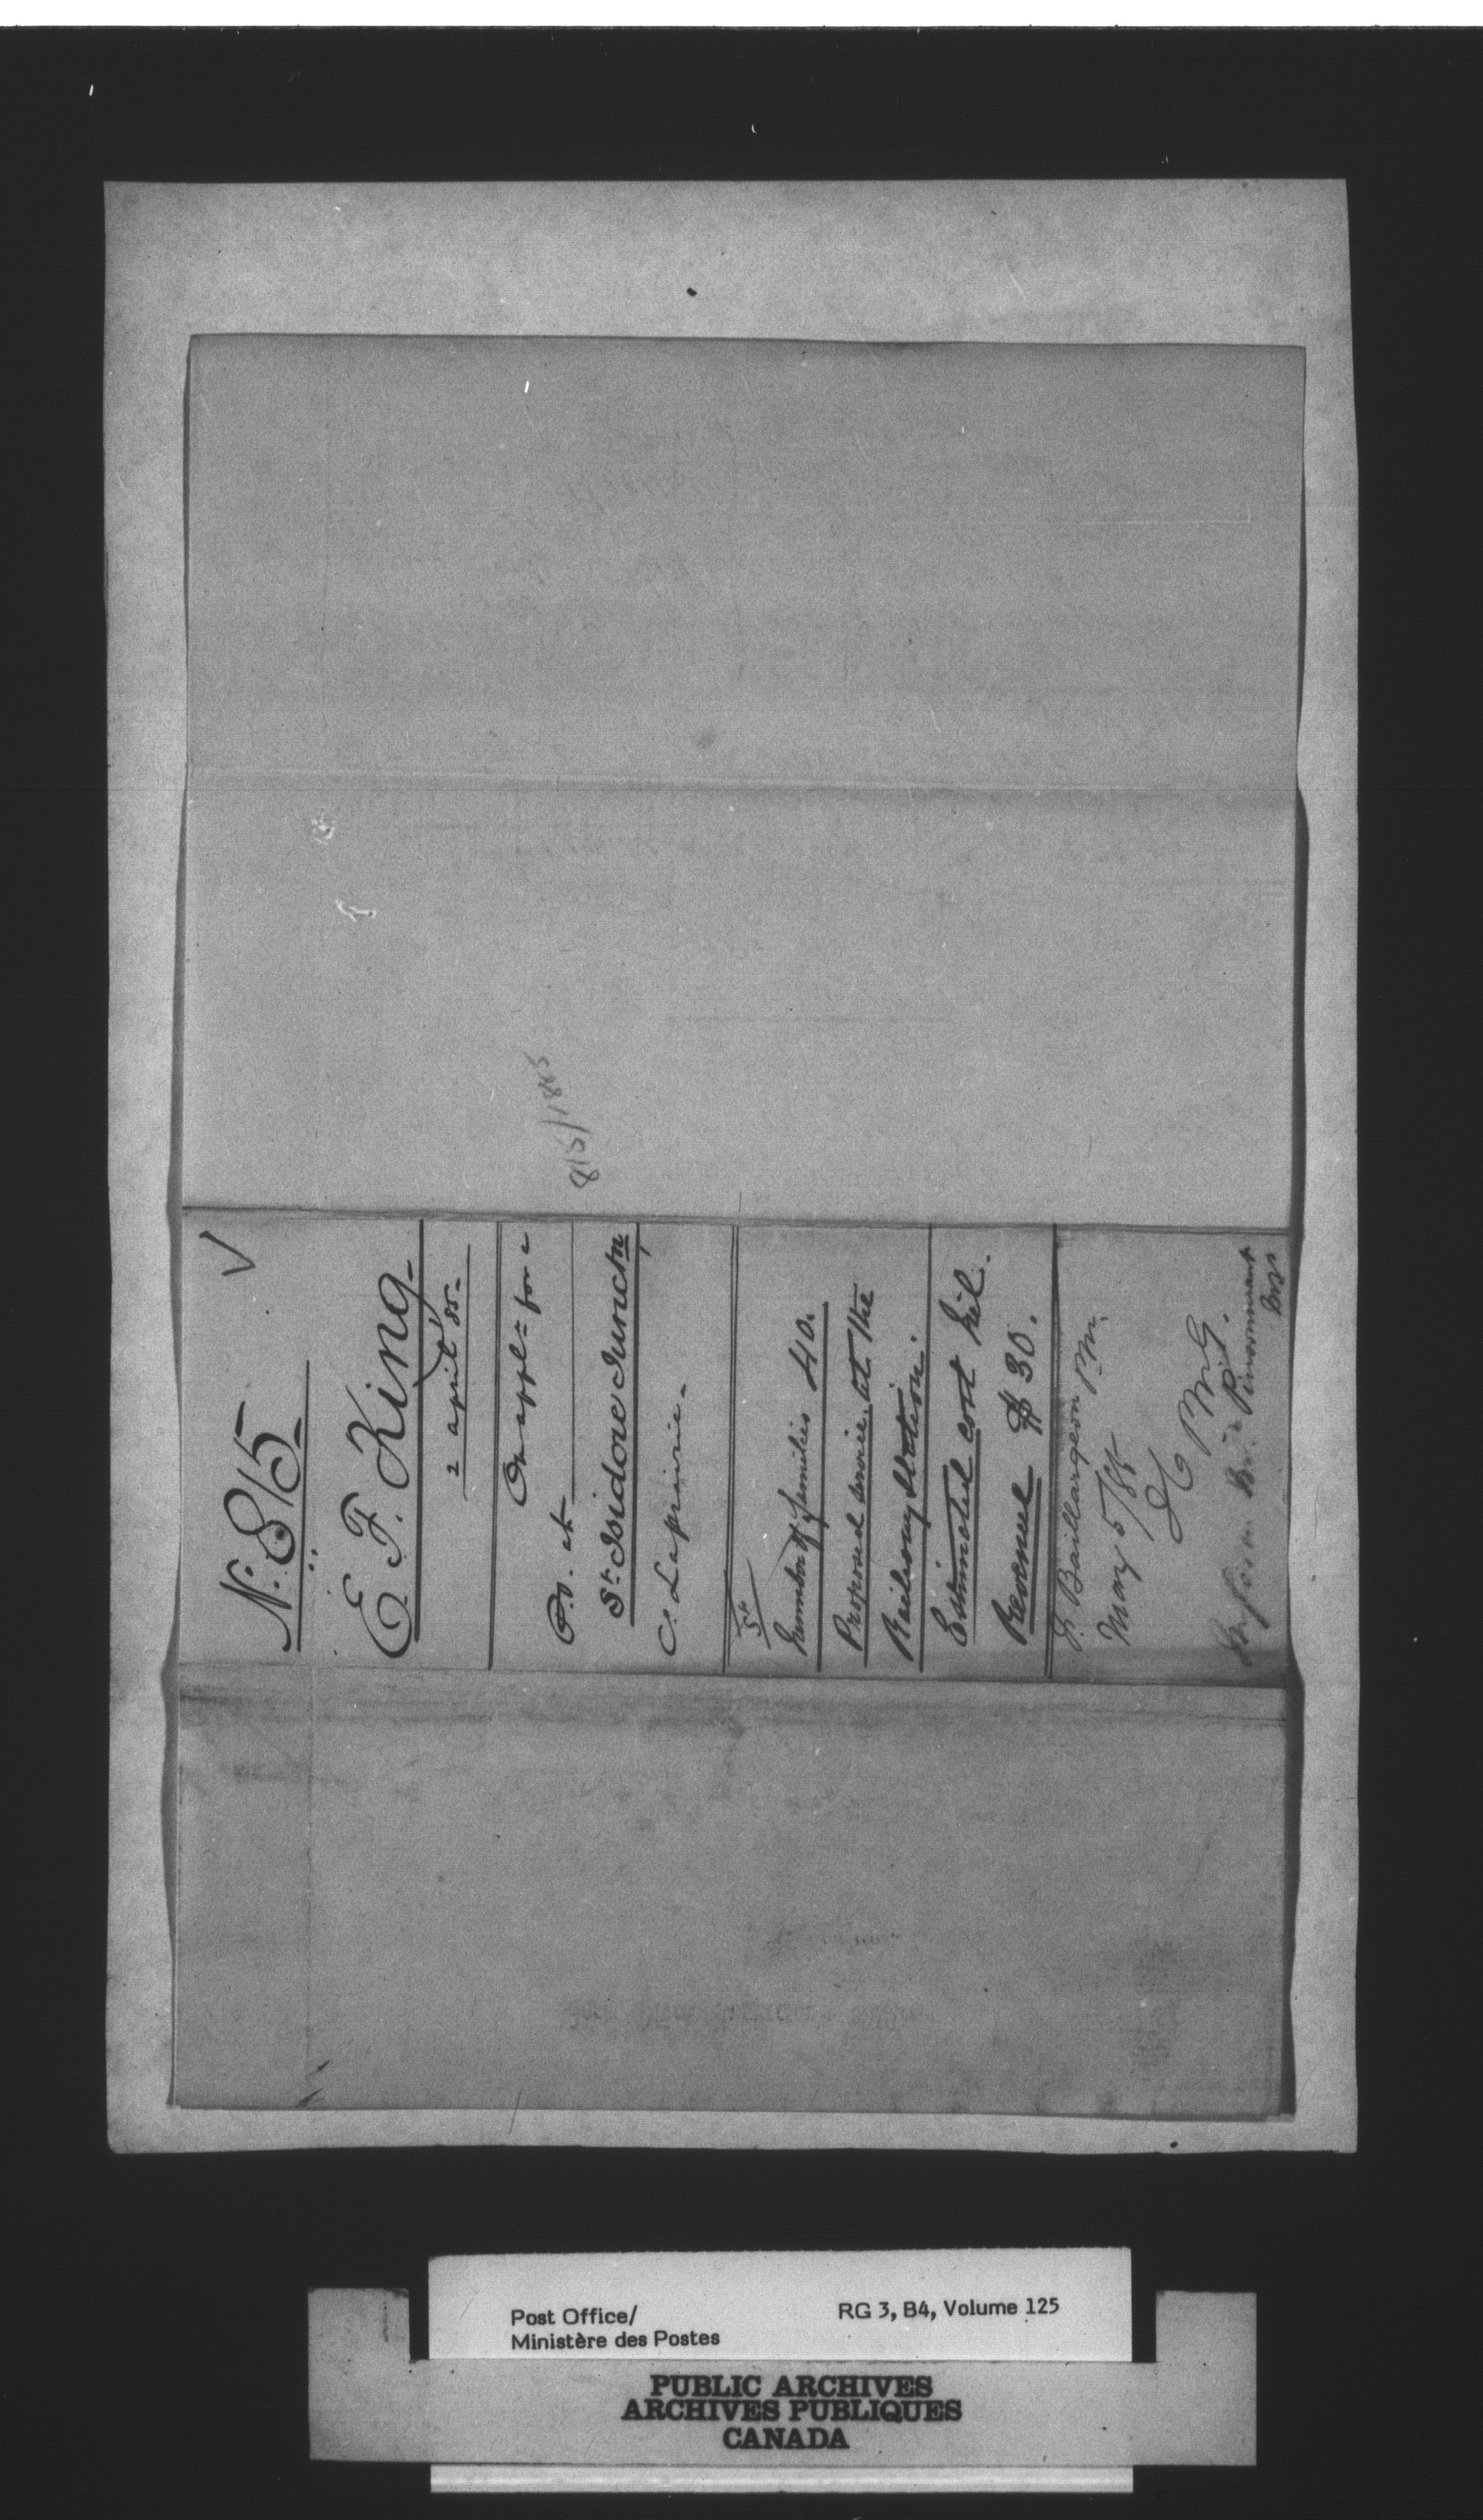 N: 815
E. F. King
2 april 85
On appl= for a
P.O. at
St. Isidore Junctn
C. Laprairie
Number of families 40.
Proposed service at the
Railway Station.
Estimated cost Nil.
Revenue $30.
J. Baillargeon PM.
May 5/85
815/1885
Post Office/
Ministère des Postes
RG 3, B4, Volume 125
PUBLIC ARCHIVES
ARCHIVES PUBLIQUES
CANADA